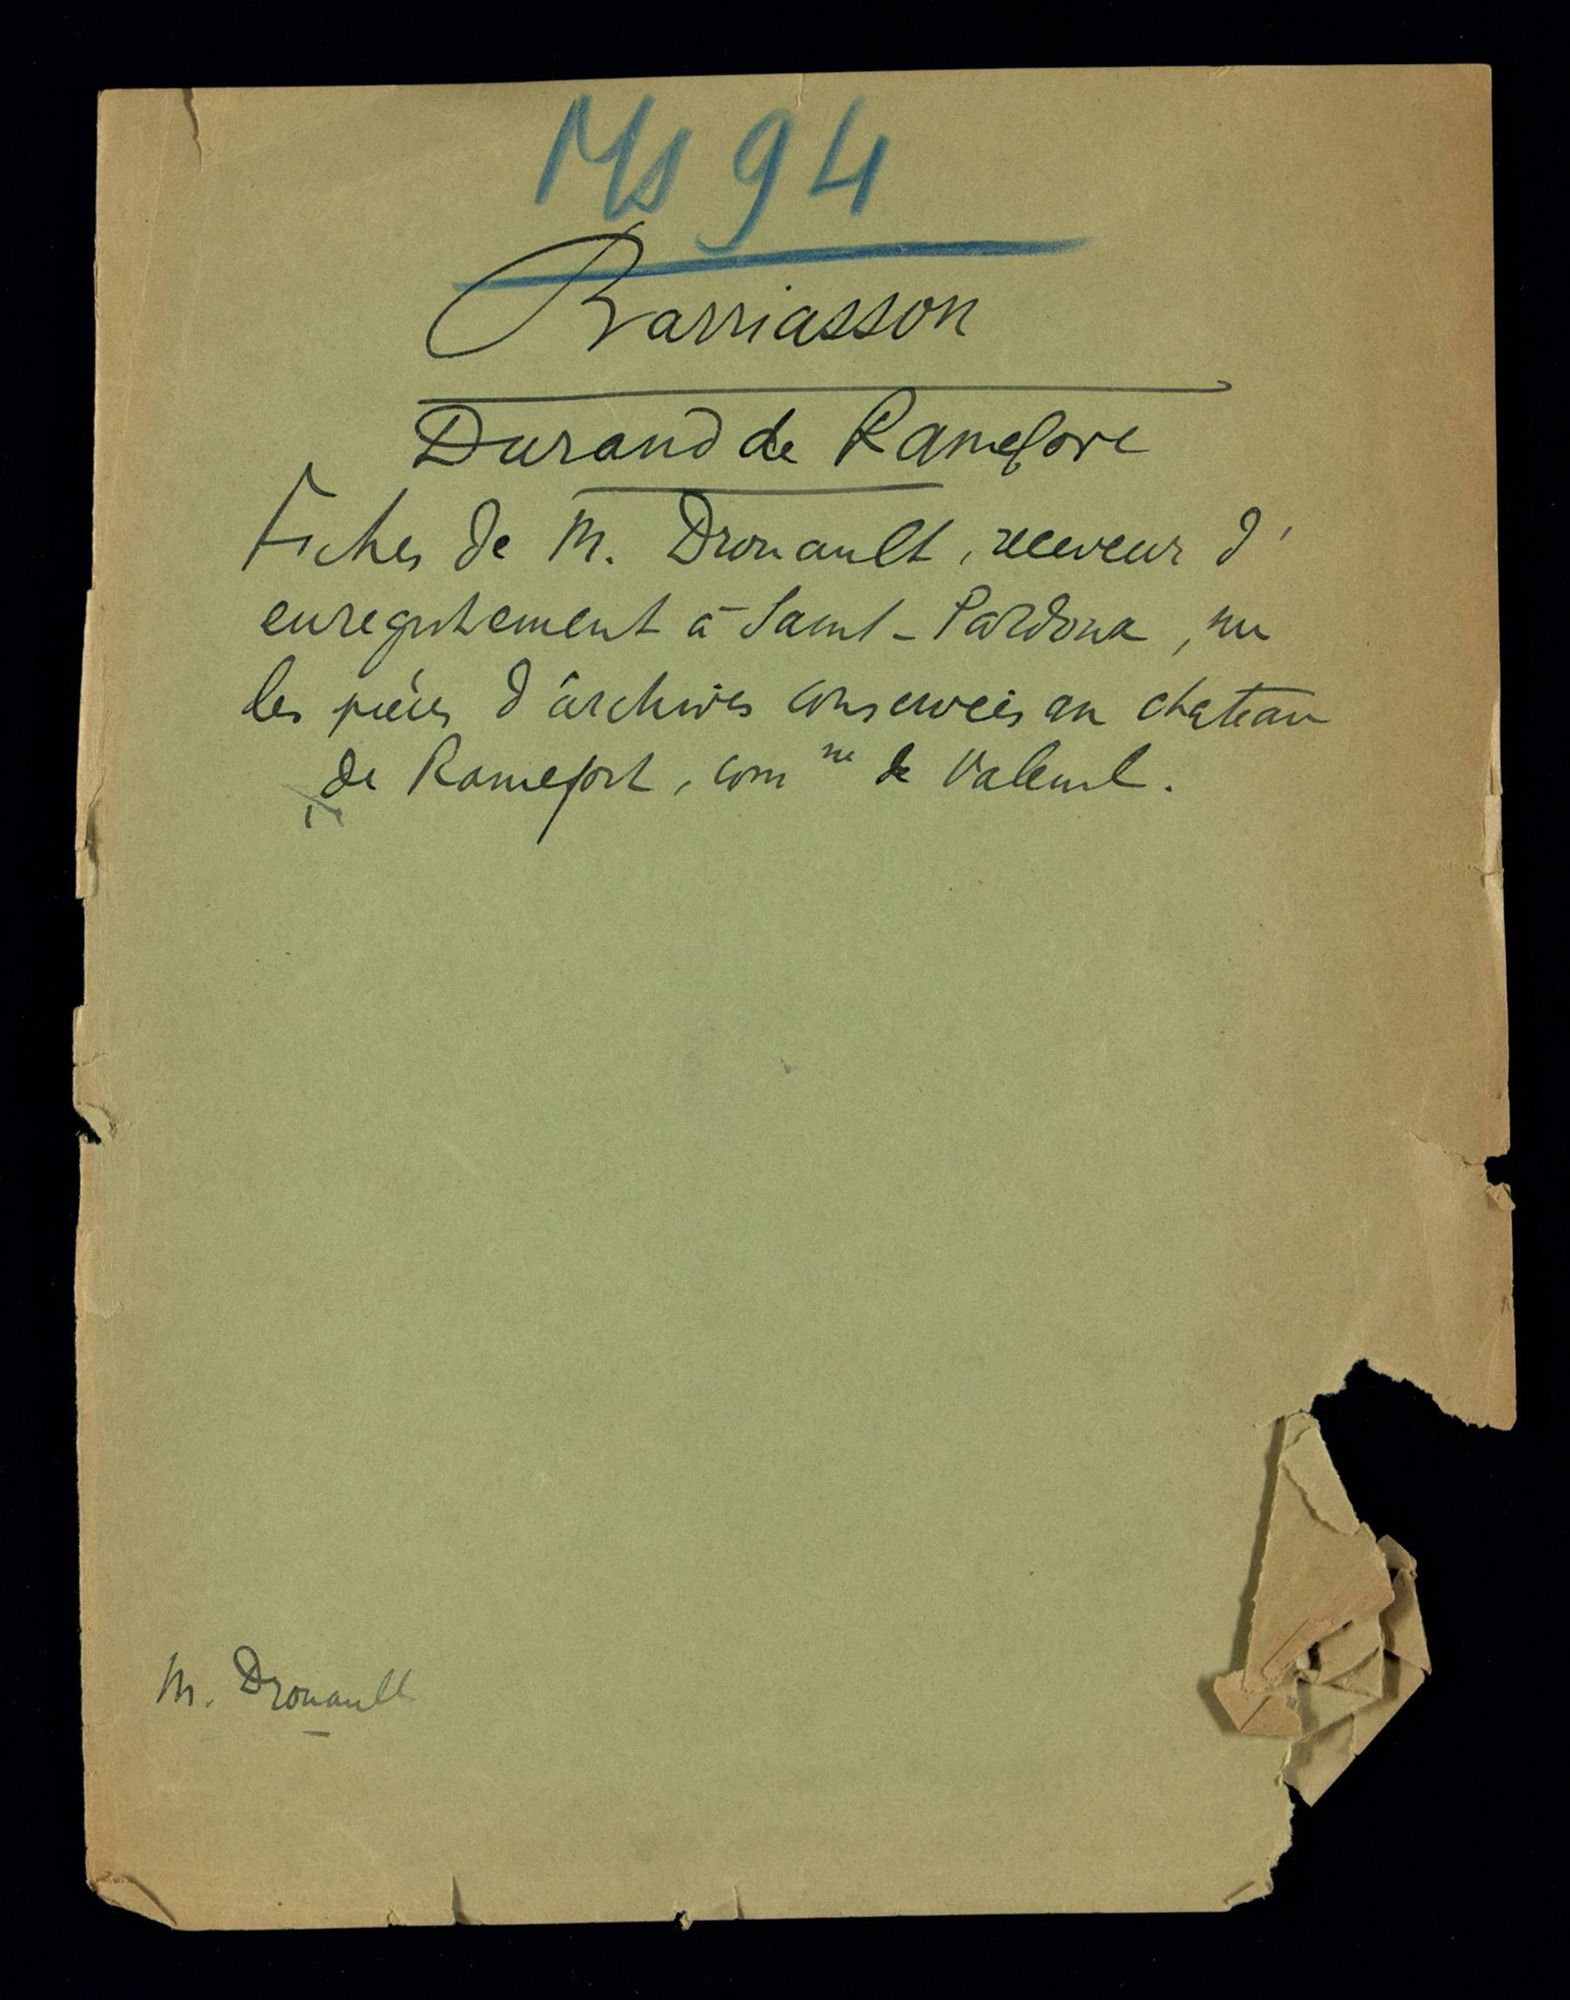 Ms 94
Barriasson
Durand de Ramefort
Fiches de M. Drouault, receveur d'
enregistrement à Saint-Pardoux, sur
les pièces d'archives conservées au château
de Ramefort, comne de Valeuil.
M. Drouault